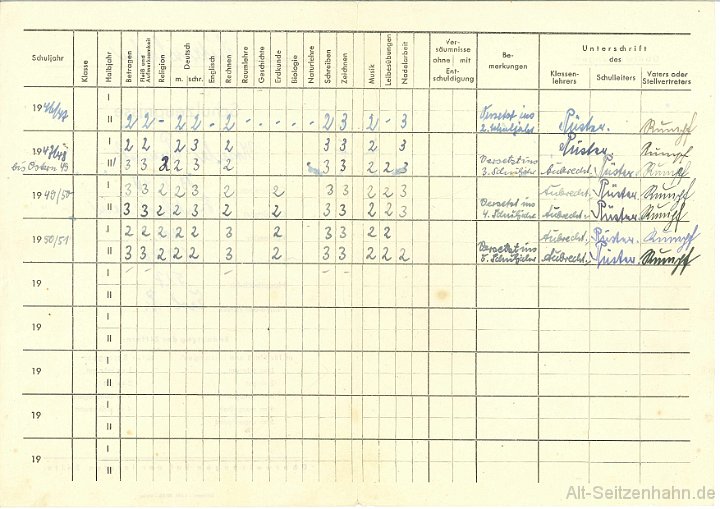 Schuljahr Klasse Halbjahr Betragen Fleiß und Aufmerksamkeit Religion Deutsch m. schr. Englisch Rechnen Raumlehre Geschichte Erdkunde Biologie Naturlehre Schreiben Zeichnen Musik Leibesübungen Nadelarbeit Versäumnisse ohne mit Entschuldigung Bemerkungen Unterschrift des Klassenlehrers Schulleiters Vaters oder Stellvertreters
I
1946/47 II 2 2 - 2 2 - 2 - - - - - 2 3 2 - 3 Versetzt ins 2. Schuljahr Püster. Rumpf
1947/48 I 2 2 2 3 2 3 3 2 3 Püster. Rumpf
bis Ostern 49 II 3 3 2 2 3 2 3 3 2 2 3 Versetzt ins 3. Schuljahr Aubrecht. Püster. Rumpf
1949/50 I 3 3 2 2 3 2 2 3 3 2 2 3 Aubrecht. Püster. Rumpf
II 3 3 2 2 3 2 2 3 3 2 2 3 Versetzt ins 4. Schuljahr Aubrecht. Püster. Rumpf
1950/51 I 2 2 2 2 2 3 2 3 3 2 2 Aubrecht. Püster. Rumpf
II 3 3 2 2 2 3 2 3 3 2 2 2 Versetzt ins 5. Schuljahr Aubrecht. Püster. Rumpf
19 I
II
19 I
II
19 I
II
19 I
II
19 I
II
Alt-Seitzenhahn.de